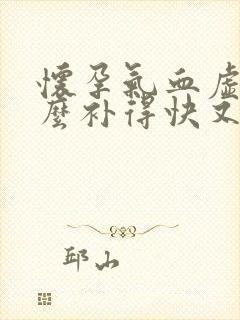 懷孕氣血虛
麼补得快又
邱山